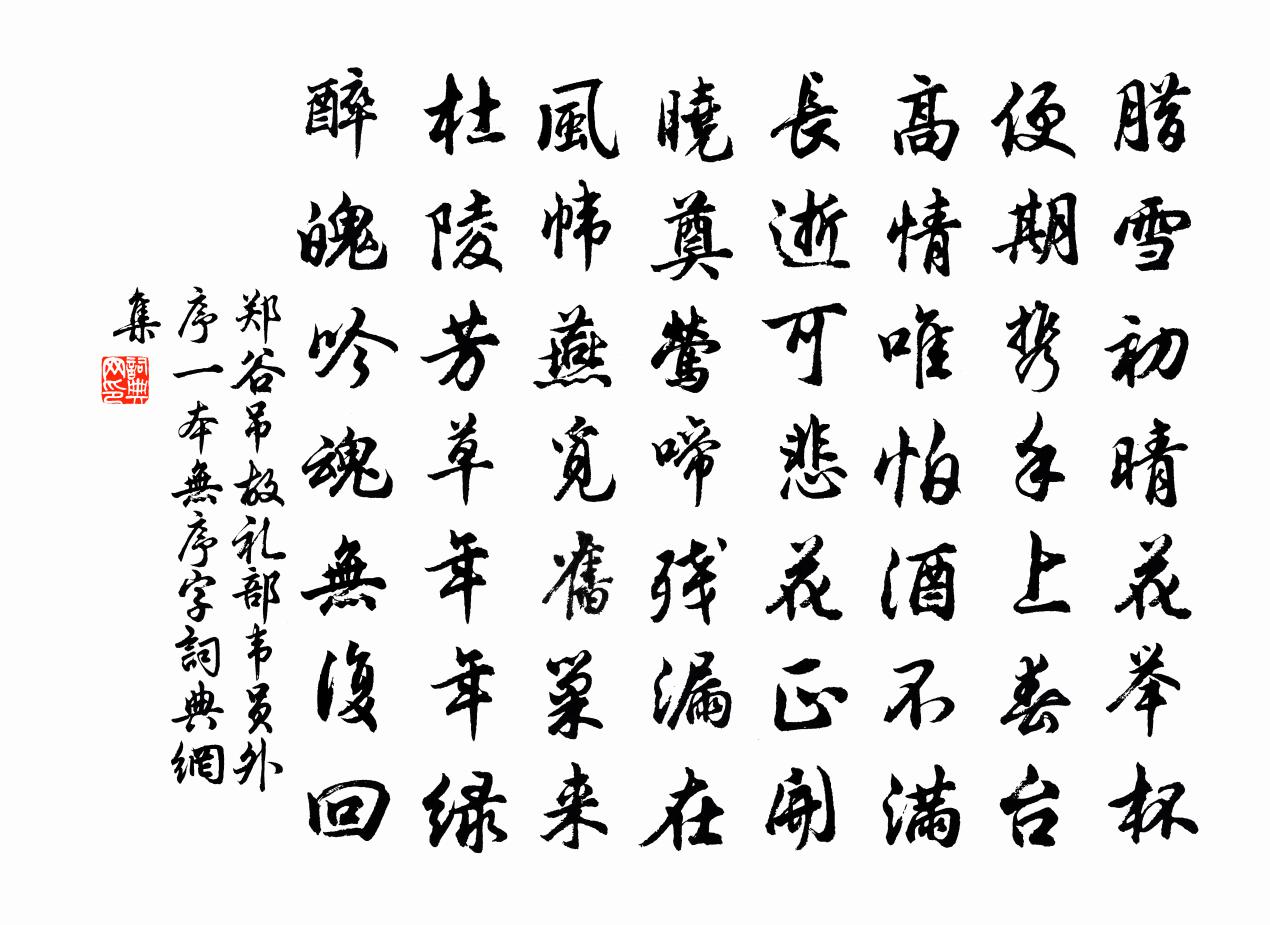 腊雪初晴花举杯
便期携手上春台
高情唯怕酒不满
長逝可悲花正開
曉奠鶯啼残漏在
風帏燕覓舊巢来
杜陵芳草年年绿
醉魄吟魂無復回
郑谷吊故礼部韦员外
序一本無序字詞典網
集
詞典网印